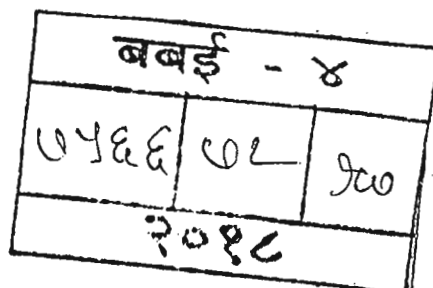 बबई - ४
७५६६ ७८ १७०
२०१८